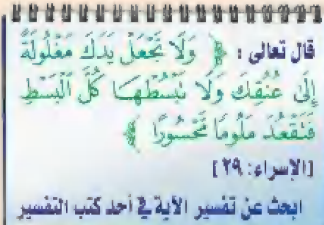 قال تعالى : ﴿ وَلَا تَجْعَلْ يَدَكَ مَغْلُولَةً
إِلَىٰ عُنُقِكَ وَلَا تَبْسُطْهَا كُلَّ الْبَسْطِ
فَتَقْعُدَ مَلُومًا مَّحْسُورًا ﴾
[الإسراء: ٢٩]
ابحث عن تفسير الآية في أحد كتب التفسير